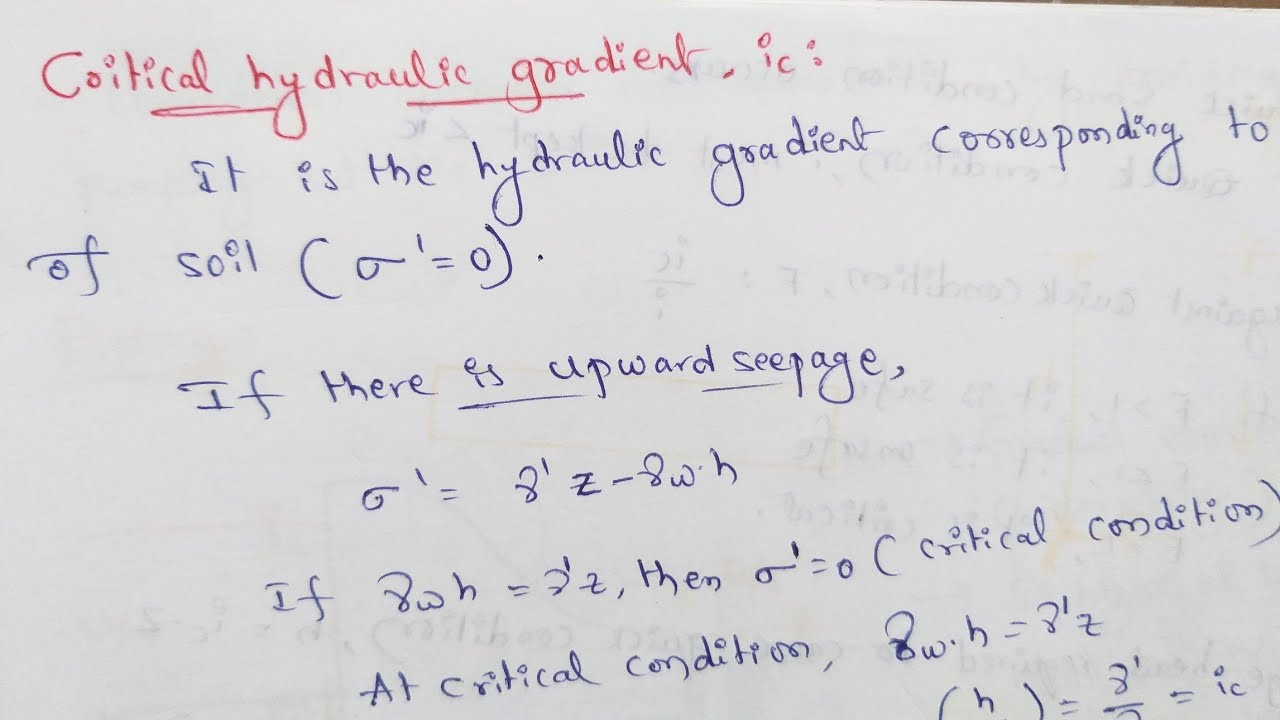 Critical hydraulic gradient, ic:
It is the hydraulic gradient corresponding to
of soil (σ'=0).
If there is upward seepage,
σ' = γ'z - γw.h
If γw h = γ'z, then σ'=0 (critical condition)
At critical condition, γw.h = γ'z
(h ) = γ' = ic